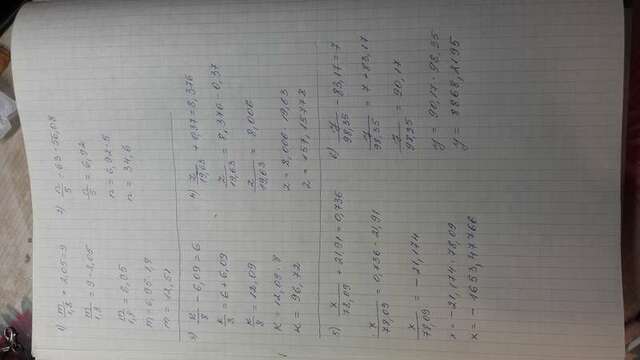 1) m/1,8 + 2,05 = 9
m/1,8 = 9 - 2,05
m/1,8 = 6,95
m = 6,95 · 1,8
m = 12,51
2) n/5 = 63 - 56,08
n/5 = 6,92
n = 6,92 · 5
n = 34,6
3) k/8 - 6,09 = 6
k/8 = 6 + 6,09
k/8 = 12,09
k = 12,09 · 8
k = 96,72
4) z/19,63 + 0,37 = 8,376
z/19,63 = 8,376 - 0,37
z/19,63 = 8,006
z = 8,006 · 19,63
z = 157,15778
x/78,09 + 21,91 = 0,736
x/78,09 = 0,736 - 21,91
x/78,09 = - 21,174
x = - 21,174 · 78,09
x = - 1653,47766
6) y/98,35 - 83,17 = 7
y/98,35 = 7 + 83,17
y/98,35 = 90,17
y = 90,17 · 98,35
y = 8868,2195